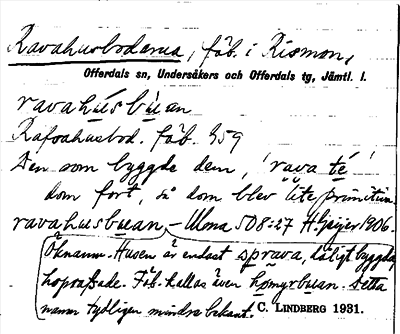 Ravahusbodarna, fäb. i Rismon,
Offerdals sn, Undersåkers och Offerdals tg, Jämtl. l.
ravahusbuan
Rafvahusbod. fäb. 859
Den som byggde dem, 'rava te'
dom fort, så dom blev lite primitiva
ravahusbuan – Ulma 508:27 H. Geijer 1906.
Öknamn. Husen är endast dåligt byggda
hoprafsade. Fäb. kallas även Detta
namn tydligen mindre bekant. C. LINDBERG 1931.